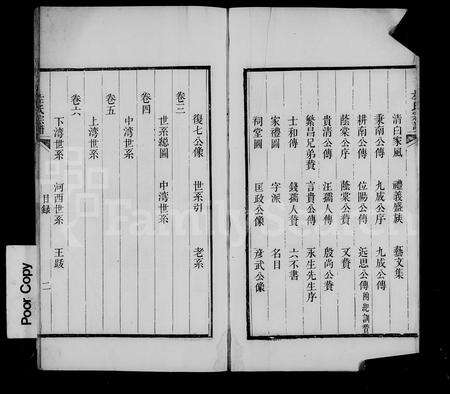 清白家風 禮義盛族 藝文集
秉南公傳 九成公序 九成公傳
耕南公傳 位陽公傳 远思公傳附訓贊
蔭棠公序 蔭棠公贊 又贊
貴清公傳 汪孺人傳 殷尚公贊
繁昌兄弟贊 言貴公傳 永生先生序
士和傳 錢孺人贊 六不書
家禮圖 字派 名目
祠堂圖 匡政公像 彦武公像
復七公像 世系引 老系
卷三
世系總圖 中湾世系
卷四
中湾世系
卷五
上湾世系
卷六
下湾世系 河西世系 王跋
目録 二
Poor Copy